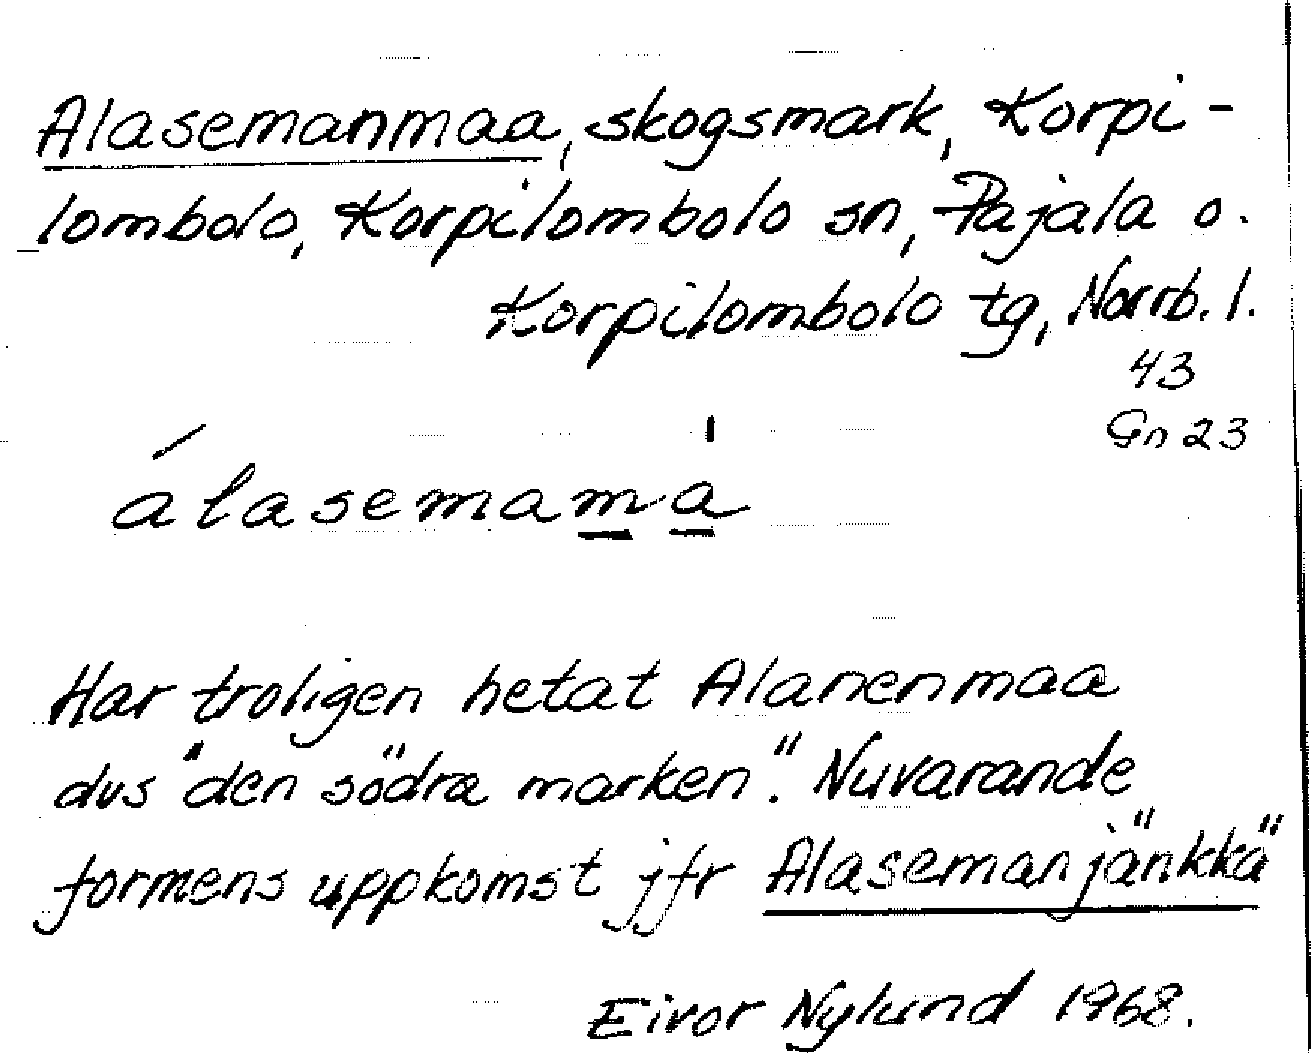 Alasemanmaa, skogsmark, Korpi-
lombolo, Korpilombolo sn, Pajala o.
Korpilombolo tg, Norrb. l.
43
Gn 23
álasemamá
Har troligen hetat Alanenmaa
dvs "den södra marken". Nuvarande
formens uppkomst jfr Alasemanjänkkä
Eivor Nylund 1968.